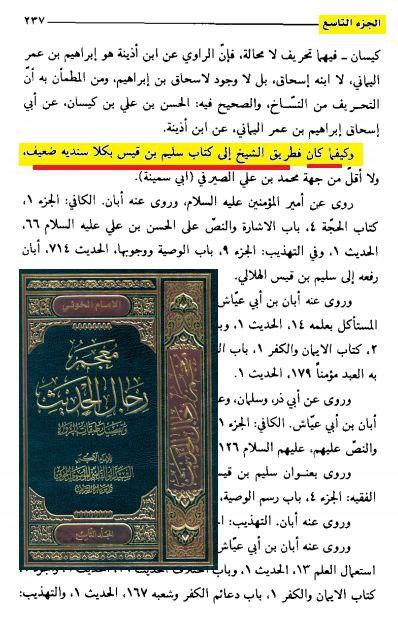 الجزء التاسع
٢٣٧
كيسان ــ فيهما تحريف لا محالة، فإنّ الراوي عن ابن أذينة هو إبراهيم بن عمر
اليماني، لا ابنه إسحاق، بل لا وجود لاسحاق بن إبراهيم، ومن المطمأن به أنّ
التحريف من النسّاخ، والصحيح فيه: الحسن بن علي بن كيسان، عن أبي
إسحاق إبراهيم بن عمر اليماني، عن ابن أذينة.
وكيفما كان فطريق الشيخ إلى كتاب سليم بن قيس بكلا سنديه ضعيف،
ولا أقلّ من جهة محمد بن علي الصيرفي (أبي سمينة).
روى عن أمير المؤمنين عليه السلام، وروى عنه أبان. الكافي: الجزء ١،
كتاب الحجّة ٤، باب الاشارة والنصّ على الحسن بن علي عليه السلام ٦٦،
الحديث ١، وفي التهذيب: الجزء ٩، باب الوصية ووجوبها، الحديث ٧١٤، أبان
رفعه إلى سليم بن قيس الهلالي.
وروى عنه أبان بن أبي عيّاش
المستأكل بعلمه ١٤، الحديث ١، وب
٢، كتاب الايمان والكفر ١، باب ال
به العبد مؤمناً ١٧٩، الحديث ١.
وروى عن أبي ذر، وسلمان، و
أبان بن أبي عيّاش. الكافي: الجزء ١
والنصّ عليهم، عليهم السلام ١٢٦
وروى بعنوان سليم بن قيس
الفقيه: الجزء ٤، باب رسم الوصية،
وروى عنه أبان. التهذيب: الج
وروى عنه أبان بن أبي عيّاش
استعمال العلم ١٣، الحديث ١، وباب
كتاب الايمان والكفر ١، باب دعائم الكفر وشعبه ١٦٧، الحديث ١، والتهذيب:
الإمام الخوئي
معجم
رجال الحديث
وتفصيل طبقات الرواة
معجم رجال الحديث